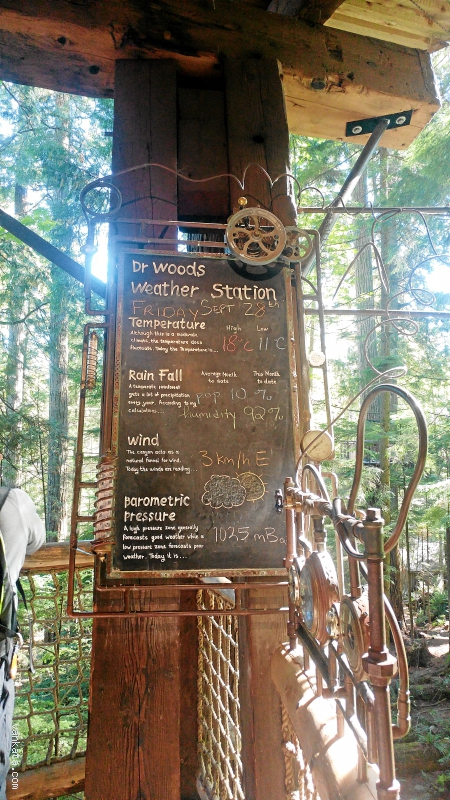 Dr Woods
Weather Station
FRIDAY SEPT 28th
Temperature High Low
Although this is a moderate
climate, the temperature does
fluctuate. Today the Temperature is... 18°C 11°C
Rain Fall Average Month This Month
to date to date
A temperate rainforest
gets a lot of precipitation POP 10 %
every year. According to my
calculations... Humidity 92%
Wind
The canyon acts as a
natural funnel for wind.
Today the winds are reading... 3 km/h E
Barometric
Pressure
A high pressure zone generally
forecasts good weather while a
low pressure zone forecasts poor
weather. Today it is... 1025 mBa